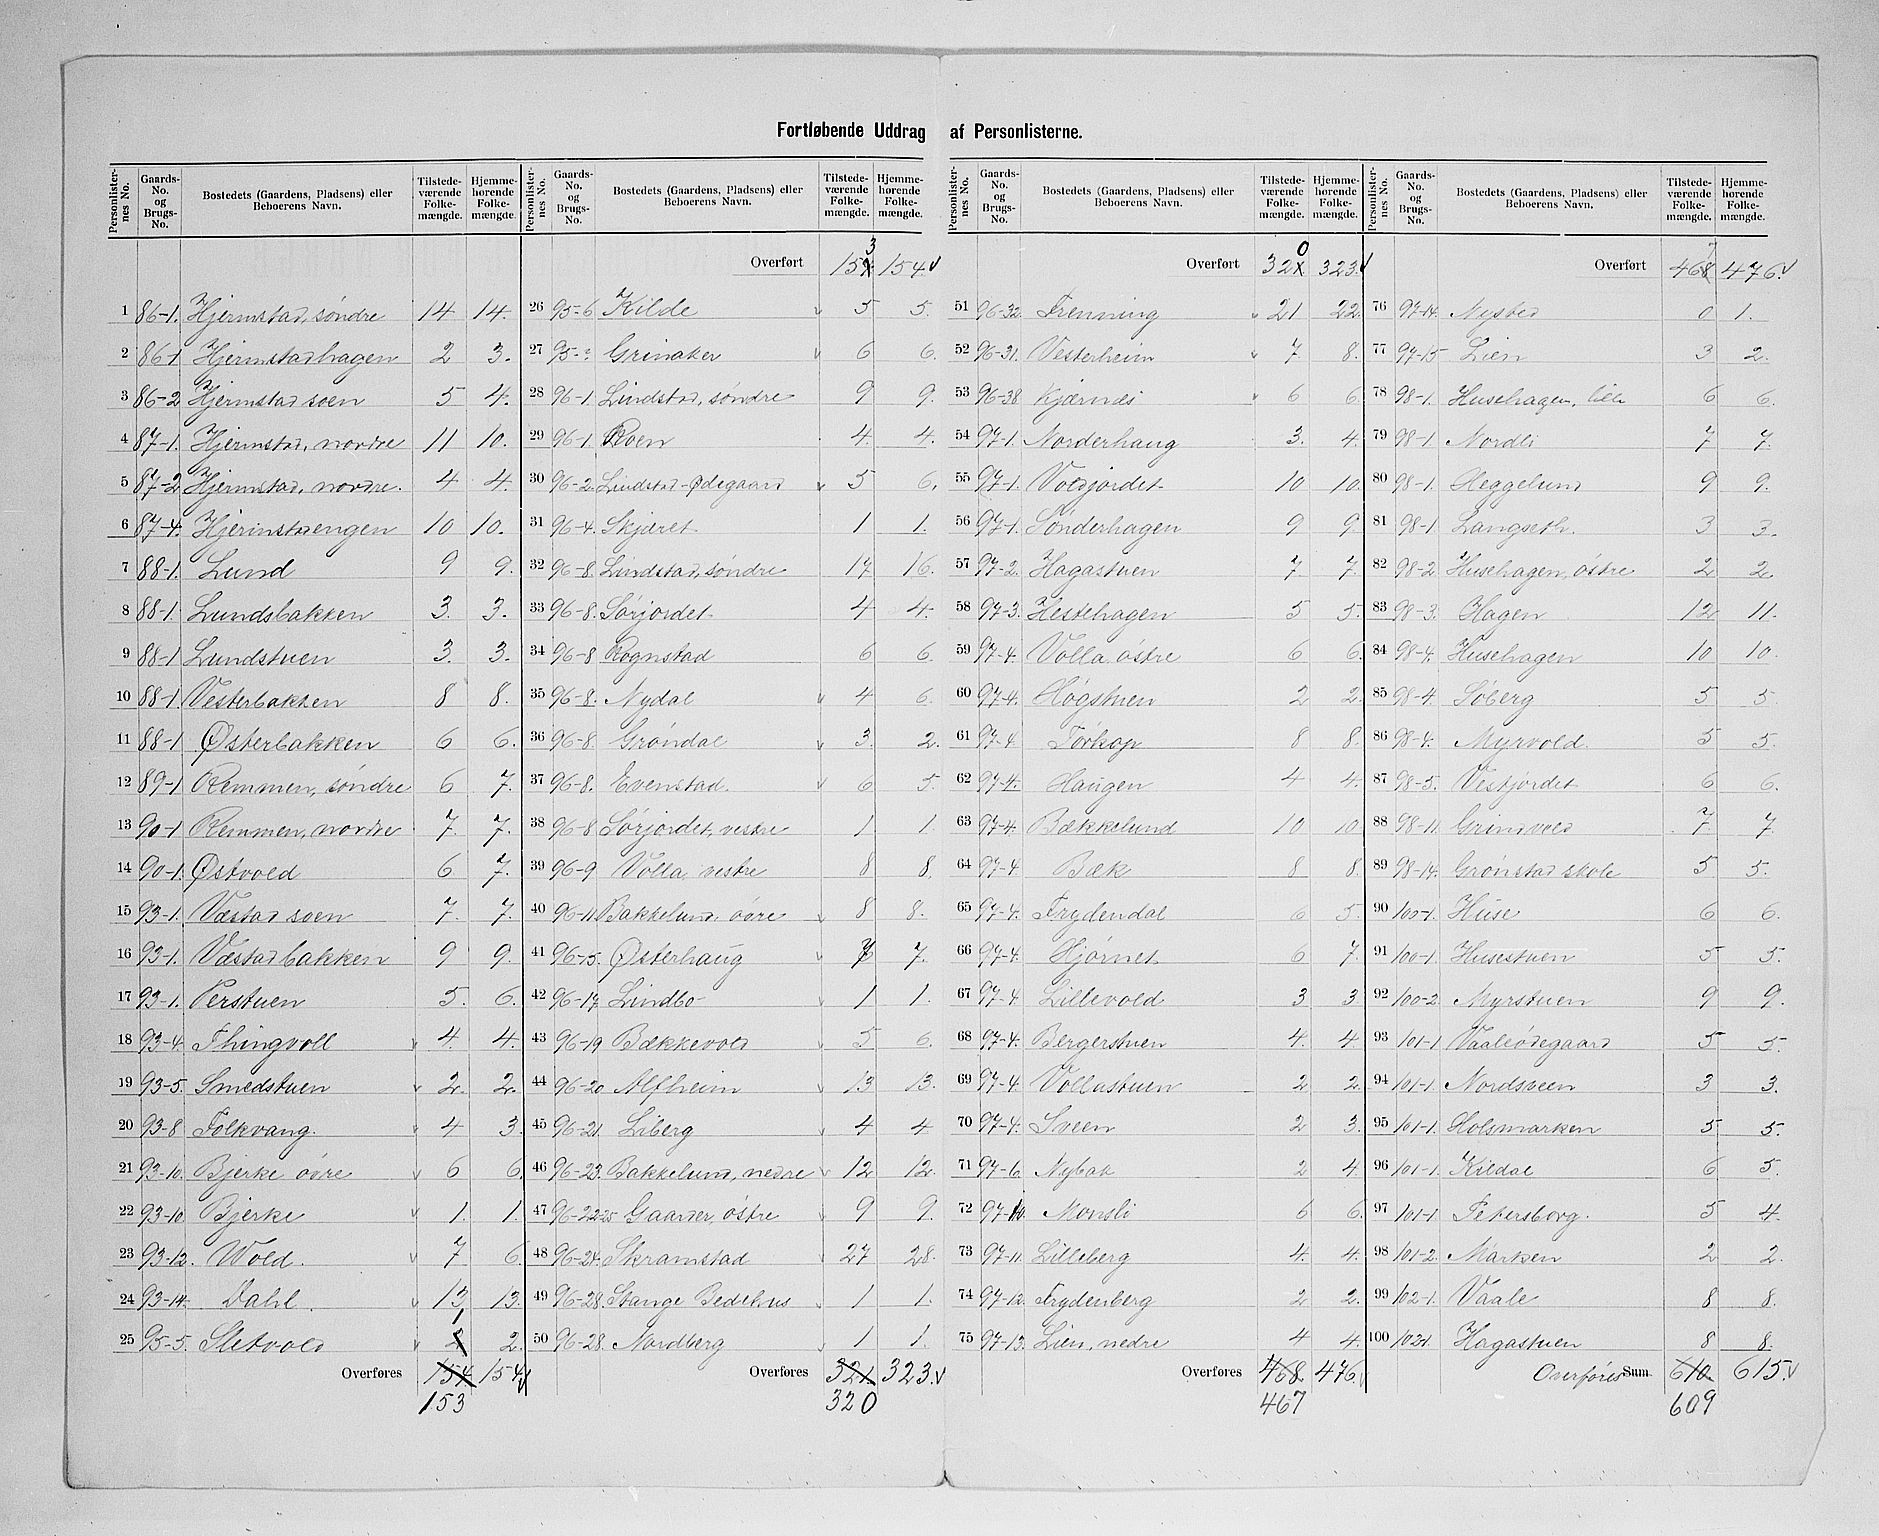 Fortløbende Uddrag af Personlisterne.
Personlisternes No. Gaards-No. og Brugs-No. Bostedets (Gaardens, Pladsens) eller Beboerens Navn. Tilstedeværende Folkemængde. Hjemmehørende Folkemængde.
1 86-1. Hjermstad, søndre 14 14.
2 86-1 Hjermstadhagen 2 3.
3 86-2 Hjermstad soen 5 4.
4 87-1. Hjermstad, nordre 11 10.
5 87-2 Hjermstad, nordre. 4 4.
6 87-4. Hjermstadengen 10 10.
7 88-1. Lund 9 9.
8 88-1. Lundsbakken 3. 3.
9 88-1 Lundstuen 3. 3.
10 88-1 Vesterbakken 8 8.
11 88-1 Østerbakken 6 6.
12 89-1 Remmen, søndre 6 7.
13 90-1 Remmen, nordre 7. 7.
14 90-1. Østvold 6 7.
15 93-1. Væstad soen 7. 7.
16 93-1. Væstadbakken 9 9.
17 93-1. Perstuen 5. 6.
18 93-4. Thingvoll v 4. 4.
19 93-5. Smedstuen v 2. 2.
20 93-8 Folkvang. v 4 3.
21 93-10. Bjerke øvre v 6 6.
22 93-10 Bjerke v 1. 1.
23 93-12. Wold. v 7 6.
24 93-14. Dahl. v 13 13.
25 95-5. Sletvold v 1 2.
Overføres 154 154 v
153
Personlisternes No. Gaards-No. og Brugs-No. Bostedets (Gaardens, Pladsens) eller Beboerens Navn. Tilstedeværende Folkemængde. Hjemmehørende Folkemængde.
Overført 153 154 v
26 95-6 Kilde v 5 5.
27 95- Grinaker v 6 6.
28 96-1. Lindstad, søndre 9 9.
29 96-1. Roen 4. 4.
30 96-2. Lindstad-Ødegaard v 5 6.
31 96-4. Skjæret 1 1.
32 96-8. Lindstad, søndre 17 16.
33 96-8. Sørjordet 4 4.
34 96-8 Rognstad 6 6.
35 96-8. Nydal v 4 6.
36 96-8. Grøndal v 3. 2.
37 96-8. Evenstad. v 6 5.
38 96-8 Sørjordet, vestre 1 1.
39 96-9 Volla, vestre 8 8.
40 96-11. Bakkelund, øvre v 8 8.
41 96-15. Østerhaug v 7 7.
42 96-17. Lindbo v 1 1.
43 96-19 Bækkevold v 5 6.
44 96-20 Alfheim v 13 13.
45 96-21. Liberg v 4 4
46 96-23. Bakkelund, nedre v 12 12.
47 96-22-25 Gaarder, østre v 9 9.
48 96-24. Skramstad v 27 28.
49 96-28. Stange Bedehus v 1 1.
50 96-28. Nordberg v 1 1.
Overføres 321. 323. v
320
Personlisternes No. Gaards-No. og Brugs-No. Bostedets (Gaardens, Pladsens) eller Beboerens Navn. Tilstedeværende Folkemængde. Hjemmehørende Folkemængde.
Overført 320 323. v
51 96-32. Frenning v 21 22.
52 96-31. Vesterheim v 7 8.
53 96-38 Kjærnæs v 6 6.
54 97-1. Norderhaug 3. 4.
55 97-1. Voldjordet 10 10.
56 97-1. Sønderhagen 9 9.
57 97-2. Hagastuen 7. 7.
58 97-3. Hestehagen 5 5.
59 97-4. Volla, østre 6 6.
60 97-4. Høgstuen 2 2.
61 97-4. Tørkop 8 8.
62 97-4. Haugen 4 4.
63 97-4. Bækkelund 10 10.
64 97-4. Bæk 8 8.
65 97-4. Frydendal 6 5.
66 97-4. Hjørnet 6 7.
67 97-4 Lillevold 3 3
68 97-4. Bergerstuen 4. 4
69 97-4. Vollastuen 2 2.
70 97-4. Sveen 2 3.
71 97-6. Nybak 2 4.
72 97-10. Monsli 6 6.
73 97-11. Lilleberg 4. 4.
74 97-12. Frydenberg 2 2.
75 97-13. Lien, nedre 4 4.
Overføres 468. 476. v
467
Personlisternes No. Gaards-No. og Brugs-No. Bostedets (Gaardens, Pladsens) eller Beboerens Navn. Tilstedeværende Folkemængde. Hjemmehørende Folkemængde.
Overført 467 476. v
76 97-14. Nysted 0 1.
77 97-15 Lien 3 2.
78 98-1. Husehagen, lille 6 6.
79 98-1. Nordli 7 7.
80 98-1. Heggelund 9 9.
81 98-1 Langseth. 3 3.
82 98-2 Husehagen, østre 2 2
83 98-3. Hagen 12 11.
84 98-4. Husehagen 10 10.
85 98-4 Søberg 5 5
86 98-4. Myrvold. 5 5.
87 98-5. Vestjordet 6 6.
88 98-11. Grindvold 7. 7.
89 98-14. Grønstad skole 5 5.
90 100-1. Huse 6 6.
91 100-1. Husestuen 5 5.
92 100-2. Myrstuen 9 9.
93 101-1 Vaaleødegaard 5 5.
94 101-1. Nordsveen 3 3.
95 101-1. Holsmarken 5 5.
96 101-1. Kildal 6 5.
97 101-1. Petersborg. 5 4.
98 101-2. Marken 2 2.
99 102-1. Vaale 8 8.
100 102-1. Hagastuen 8 8.
Overføres Sum 610. 615. v
609